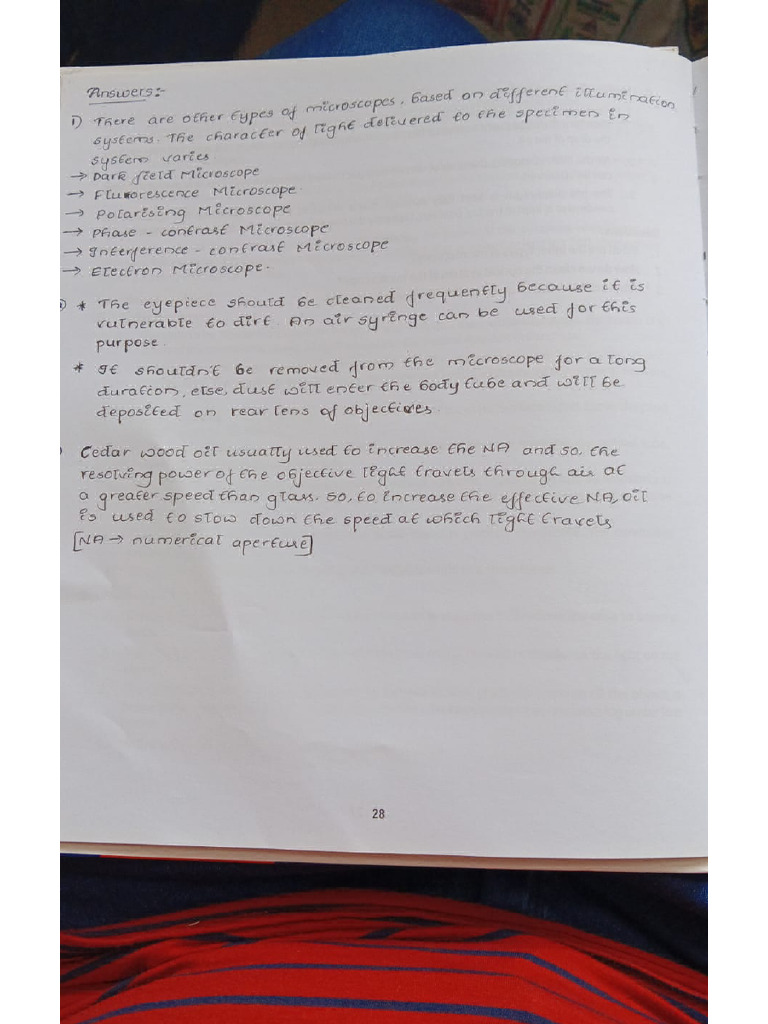 Answers:-
1) There are other types of microscopes, based on different illumination
systems. The character of light delivered to the specimen in
system varies.
→ Dark field Microscope
→ Fluorescence Microscope.
→ Polarising Microscope
→ Phase - contrast Microscope
→ Interference - contrast Microscope
→ Electron Microscope.
* The eyepiece should be cleaned frequently because it is
vulnerable to dirt. An air syringe can be used for this
purpose.
* It shouldn't be removed from the microscope for a long
duration, else, dust will enter the body tube and will be
deposited on rear lens of objectives.
) Cedar wood oil usually used to increase the NA and so, the
resolving power of the objective light travels through air at
a greater speed than glass. so, to increase the effective NA, oil
is used to slow down the speed at which light travels
[NA → numerical aperture]
28